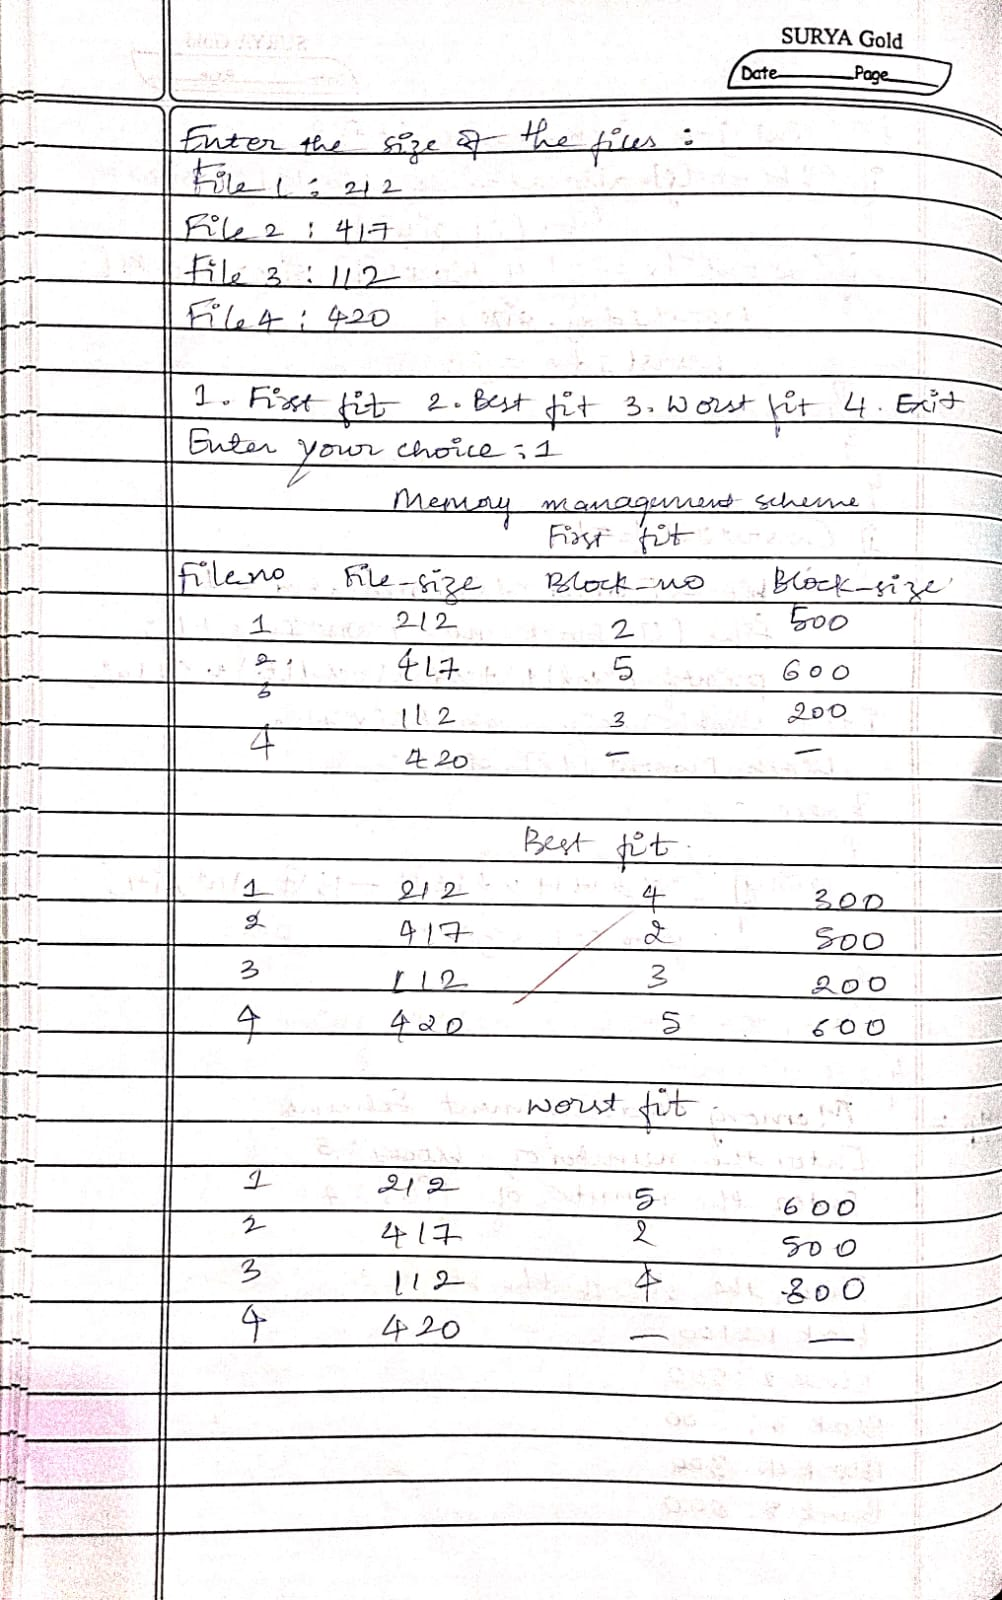 SURYA Gold
Date Page
Enter the size of the files :
File 1 : 212
File 2 : 417
File 3 : 112
File 4 : 420
1. First fit 2. Best fit 3. Worst fit 4. Exit
Enter your choice : 1
Memory management scheme
First fit
File no File-size Block-no Block-size
1 212 2 500
2 417 5 600
3 112 3 200
4 420 – –
Best fit
1 212 4 300
2 417 2 500
3 112 3 200
4 420 5 600
worst fit
1 212 5 600
2 417 2 500
3 112 4 300
4 420 — —